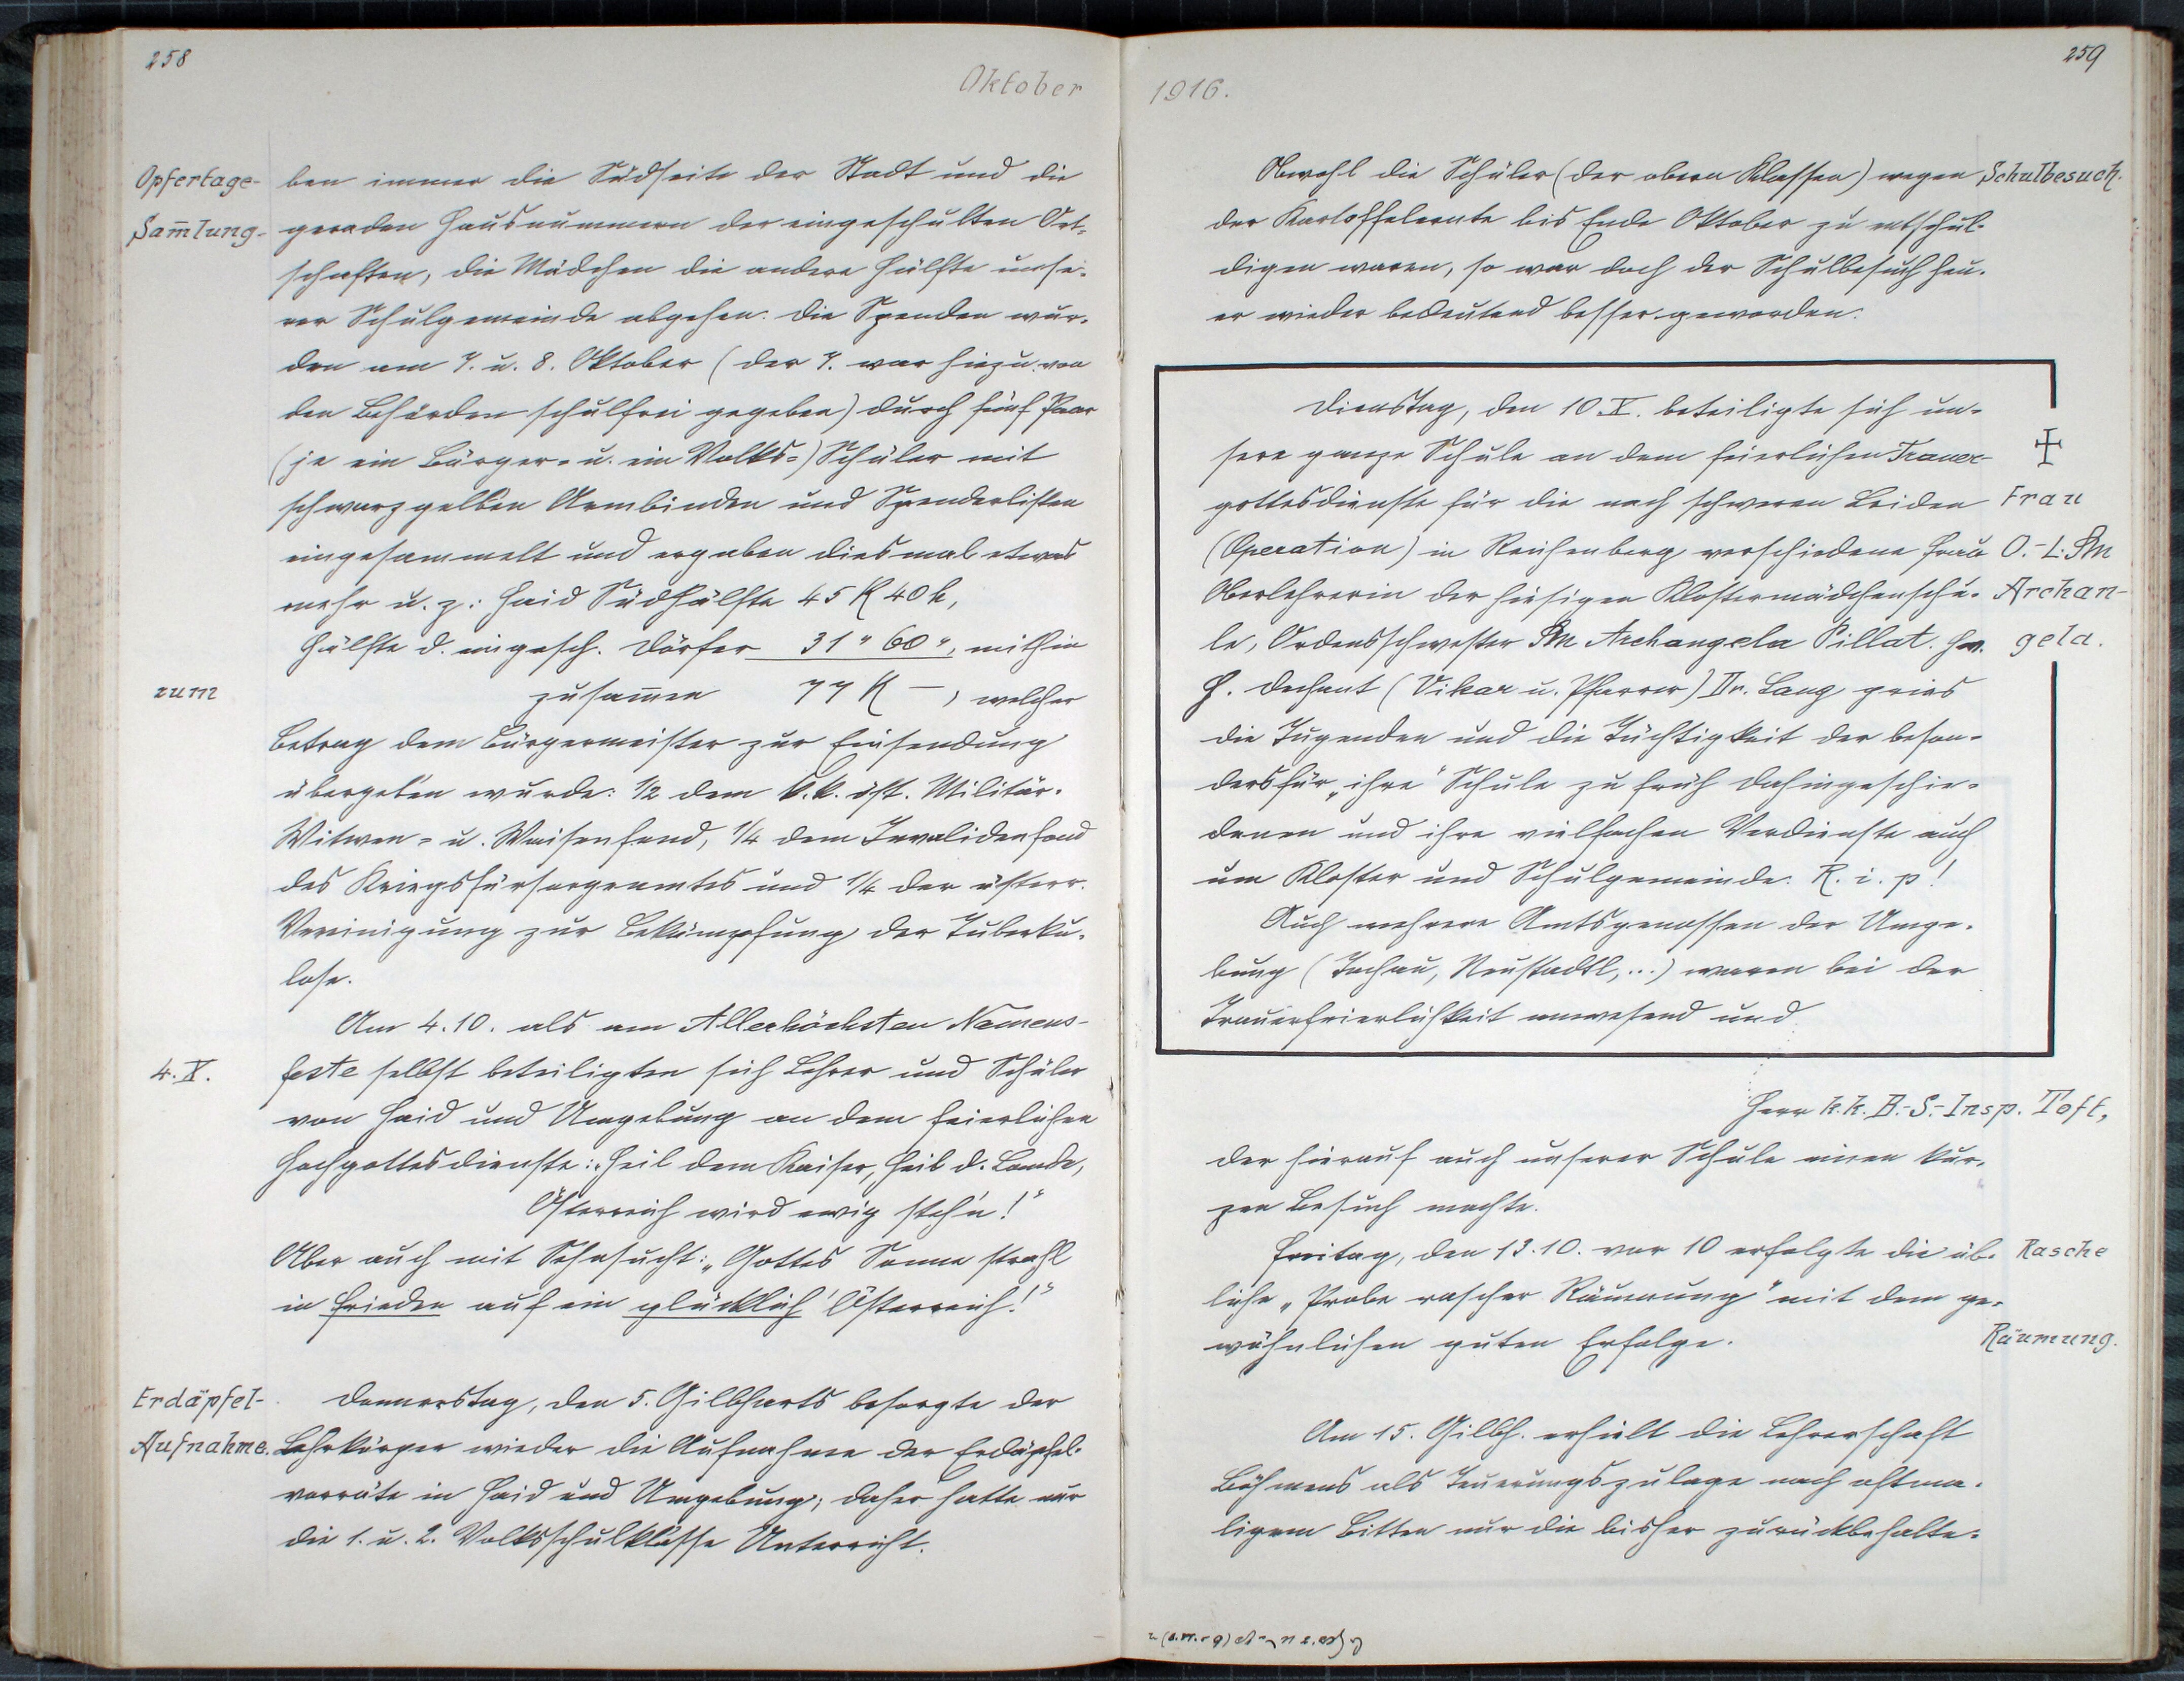 258
Oktober
Opfertage-
Sam̄lung.
ben immer die Südseite der Stadt und die
geraden Hausnummern der eingeschulten Ort-
schaften, die Mädchen die andere Hälfte unse-
rer Schulgemeinde abgehen. Die Spenden wur-
den am 7. u. 8. Oktober (der 7. war hiezu von
den Behörden schulfrei gegeben) durch fünf Paar
(je ein Bürger- u. ein Volks-) Schüler mit
schwarzgelben Armbinden und Spenderlisten
eingesammelt und ergaben diesmal etwas
mehr u. z.: Haid Südhälfte 45 K 40 h,
Hälfte d. eingesch. Dörfer 31 " 60 ", mithin
zum
zusam̄en 77 K —, welcher
Betrag dem Bürgermeister zur Einsendung
übergeben wurde: 1/2 dem k.k. öst. Militär-
Witwen- u. Waisenfond, 1/4 dem Invalidenfond
des Kriegsfürsorgeamtes und 1/4 der österr.
Vereinigung zur Bekämpfung der Tuberku-
lose.
Am 4.10. als am Allerhöchsten Namens-
4. X.
feste selbst beteiligten sich Lehrer und Schüler
von Haid und Umgebung an dem feierlichen
Hochgottesdienste: „Heil dem Kaiser, Heil d. Lande,
Österreich wird ewig steh'n!"
Aber auch mit Sehnsucht: „Gottes Sonne strahl
in Frieden auf ein glücklich' Österreich!"
Erdäpfel-
Aufnahme.
Donnerstag, den 5. Gilbharts besorgte der
Lehrkörper wieder die Aufnahme der Erdäpfel-
vorräte in Haid und Umgebung; daher hatte nur
die 1. u. 2. Volksschulklasse Unterricht.
259
1916.
Obwohl die Schüler (der obern Klassen) wegen
Schulbesuch.
der Kartoffelernte bis Ende Oktober zu entschul-
digen waren, so war doch der Schulbesuch heu-
er wieder bedeutend besser geworden.
Dienstag, den 10. X. beteiligte sich un-
sere ganze Schule an dem feierlichen Trauer-
gottesdienste für die nach schweren Leiden
(Operation) in Reichenberg verschiedene Frau
Oberlehrerin der hiesigen Klostermädchenschu-
le, Ordensschwester Archangela Pillat.
Frau
O.-L.
Archan-
gela.
H. Dechant (Vikar u. Pfarrer) Dr. Lang pries
die Tugenden und die Tüchtigkeit der beson-
ders für „ihre" Schule zu früh Dahingeschie-
denen und ihre vielfachen Verdienste auch
um Kloster und Schulgemeinde. R. i. p!
Auch mehrere Amtsgenossen der Umge-
bung (Tachau, Neustadtl, ...) waren bei der
Trauerfeierlichkeit anwesend und
Herr k.k. B.-S.-Insp. Toft,
der hierauf auch unserer Schule einen kur-
zen Besuch machte.
Freitag, den 13.10. vor 10 erfolgte die üb-
Rasche
liche „Probe rascher Räumung" mit dem ge-
wöhnlichen guten Erfolge.
Räumung.
Am 15. Gilbh. erhielt die Lehrerschaft
Böhmens als Teuerungszulage nach oftma-
ligem Bitten nur die bisher zurückbehalte-